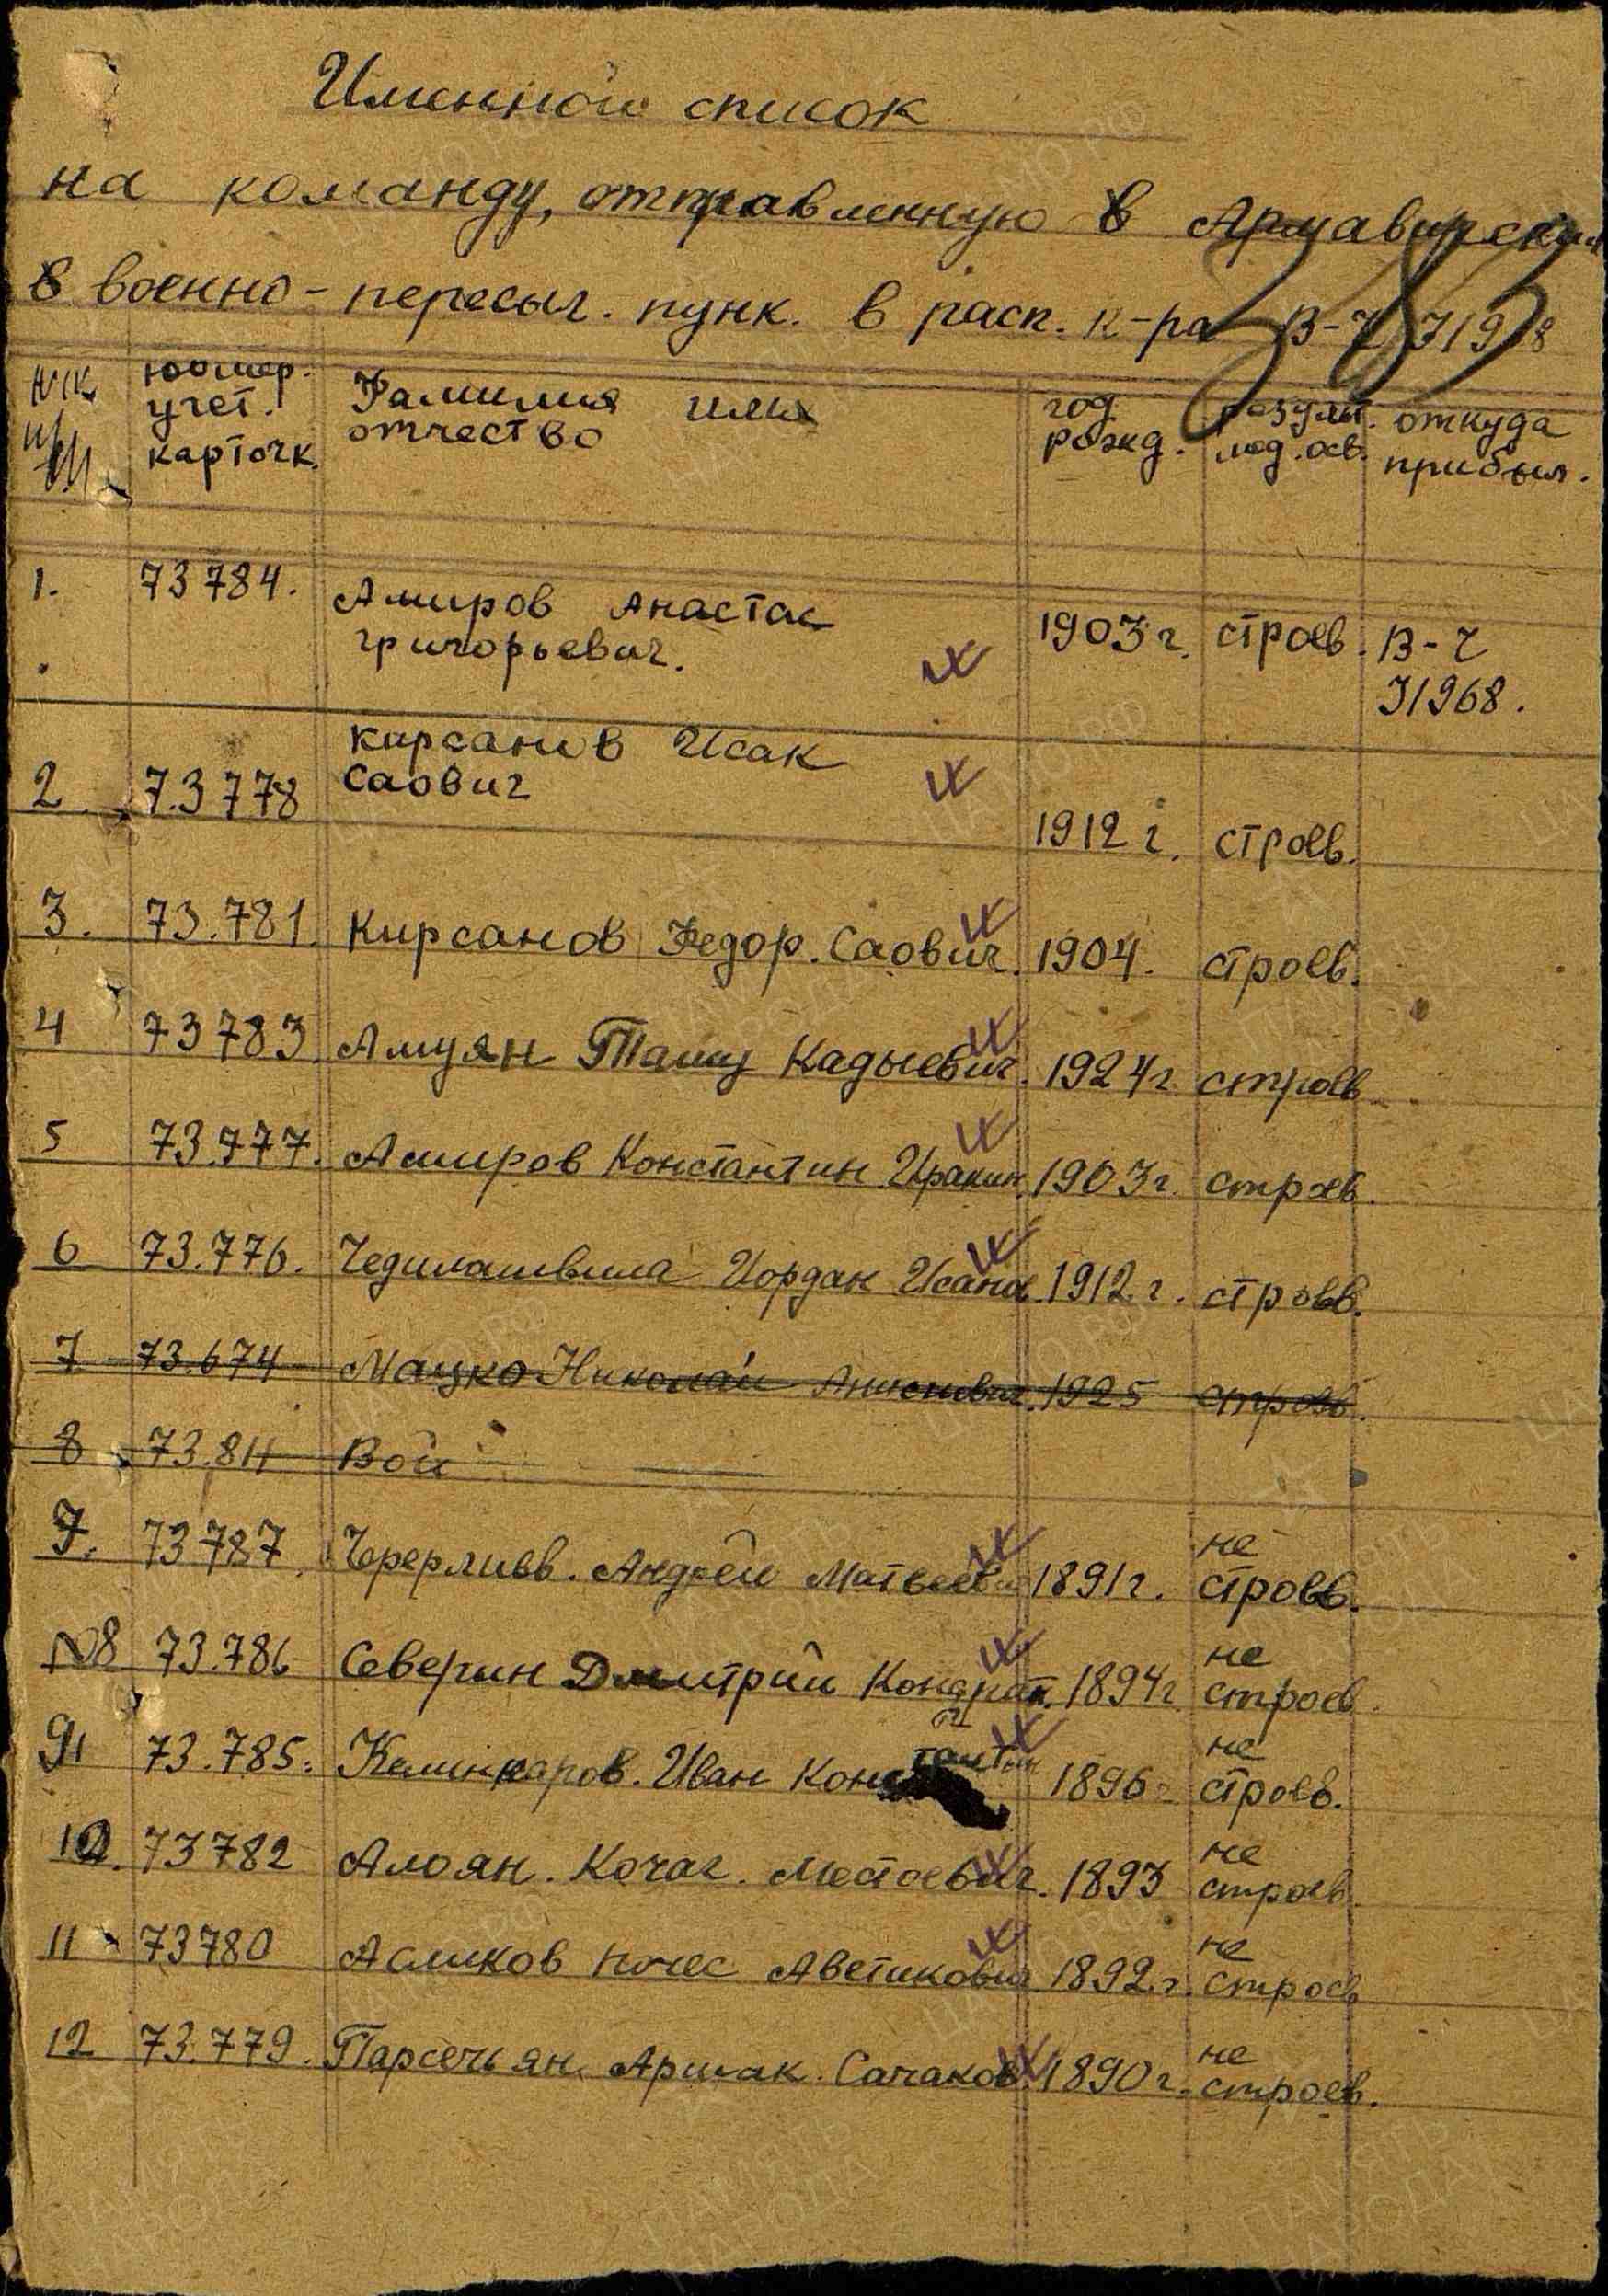 Именной список
на команду, отправленную в Армавирский
в военно-пересыл. пунк. в расп. к-ра В-Ч 31968
383
№№ п/п номер. учет. карточк. Фамилия имя отчество год рожд. результ. мед. осв. откуда прибыл.
1. 73784. Амиров Анастас григорьевич. 1903 г. строев. В-Ч 31968.
2 73778 Кирсанов Исак Саович 1912 г. строев.
3. 73.781. Кирсанов Федор. Саович. 1904. строев.
4 73783 Амуян Тамц Кадыевич. 1924 г строев
5 73.777. Амиров Константин Иракин. 1903 г. строев.
6 73.776. Чедилашвила Иордан Исана 1912. г. строев.
7 73.674 Мацко Николай 1925 строев.
8 73.811 Вой
7. 73787. Андрей Матвеевич 1891 г. не строев.
№8 73.786 Северин Дмитрий Кондрат. 1894 г. не строев.
9 73.785. Иван Константин 1896 не строев.
10. 73782 Алоян. Кочаг. Местоевич. 1893 не строев.
11 73780 Асликов Аветикович 1892. г. не строев
12 73.779. Парсечьян. Аршак. Сачаков. 1890 г. не строев.